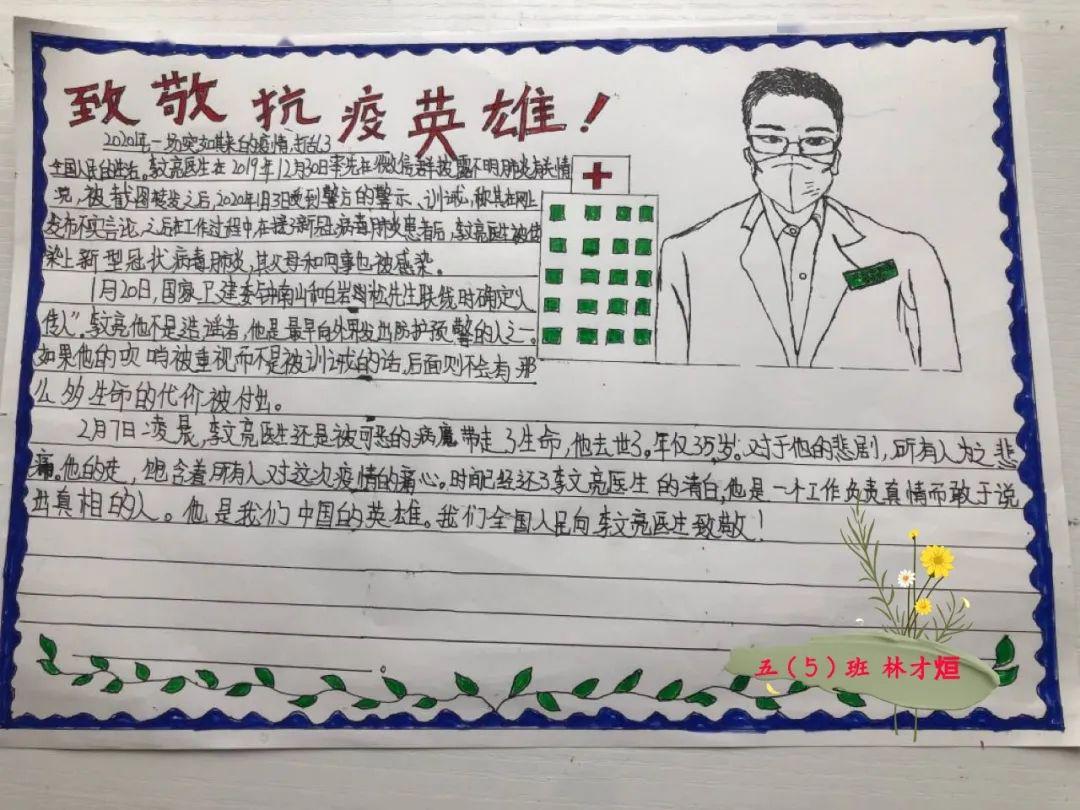 致敬抗疫英雄！
2020年一场突如其来的疫情,打乱了
全国人民的生活。李文亮医生在2019年12月30日率先在微信群披露不明肺炎有关情
况，被截图转发之后,2020年1月3日受到警方的警示、训诫,称其在网上
发布不实言论,之后在工作过程中,在接了新冠病毒肺炎患者后,李文亮医生被传
染上新型冠状病毒肺炎,其父母和同事也被感染。
1月20日,国家卫建委钟南山和白岩松先生联线时确定"人
传人"。李文亮他不是造谣者,他是最早向外界发出防护预警的人之一。
如果他的吹哨被重视而不是被训诫的话,后面则不会有那
么多生命的代价被付出。
2月7日凌晨,李文亮医生还是被可恶的病魔带走了生命,他去世了。年仅35岁。对于他的悲剧,所有人为之悲
痛。他的走,饱含着所有人对这次疫情的痛心。时间已经还了李文亮医生的清白,他是一个工作负责真情而敢于说
出真相的人。他是我们中国的英雄。我们全国人民向李文亮医生致敬!
五（5）班 林才烜